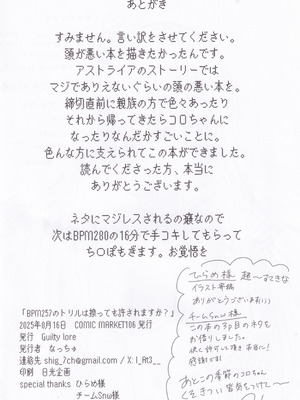 あとがき
すみません。言い訳をさせてください。
頭が悪い本を描きたかったんです。
アストライアのストーリーでは
マジでありえないぐらいの頭の悪い本を。
締切直前に親族の方で色々あったり
それから帰ってきたらコロちゃんに
なったりなんだかすごいことに。
色んな方に支えられてこの本ができました。
読んでくださった方、本当に
ありがとうございます。
ネタにマジレスされるの癪なので
次はBPM280の16分で手コキしてもらって
ち〇ぽもぎます。お覚悟を
「BPM257のトリルは擦っても許されますか？」
2025年8月16日 COMIC MARKET106 発行
発行 Guilty lore
発行者 なっちゅ
連絡先 shig_7ch@gmail.com / X:I_Rt3__
印刷 日光企画
special thanks ひらめ様
チームSnw様
ひらめ様 超〜すてきな
イラスト寄稿
ありがとうございます
チームSnw様
この本の30頁のネタを
お借りしました。
快く許可して頂き本当に!
感謝です!
あとこの季節のコロちゃん